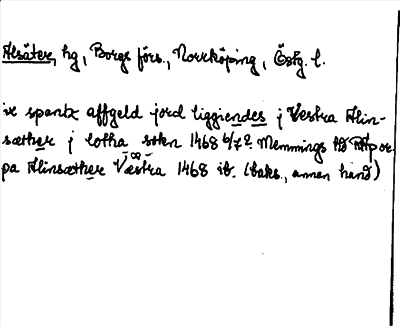 Alsäter, hg, Borgs förs., Norrköping, Östg. l.
ix spantx affgeld jord liggiendes j Vestra Alin-
sæther j lotha sokn 1468 6/7 Memmings
pa Alinsæther Væstra 1468 ib. (baks., annan hand)